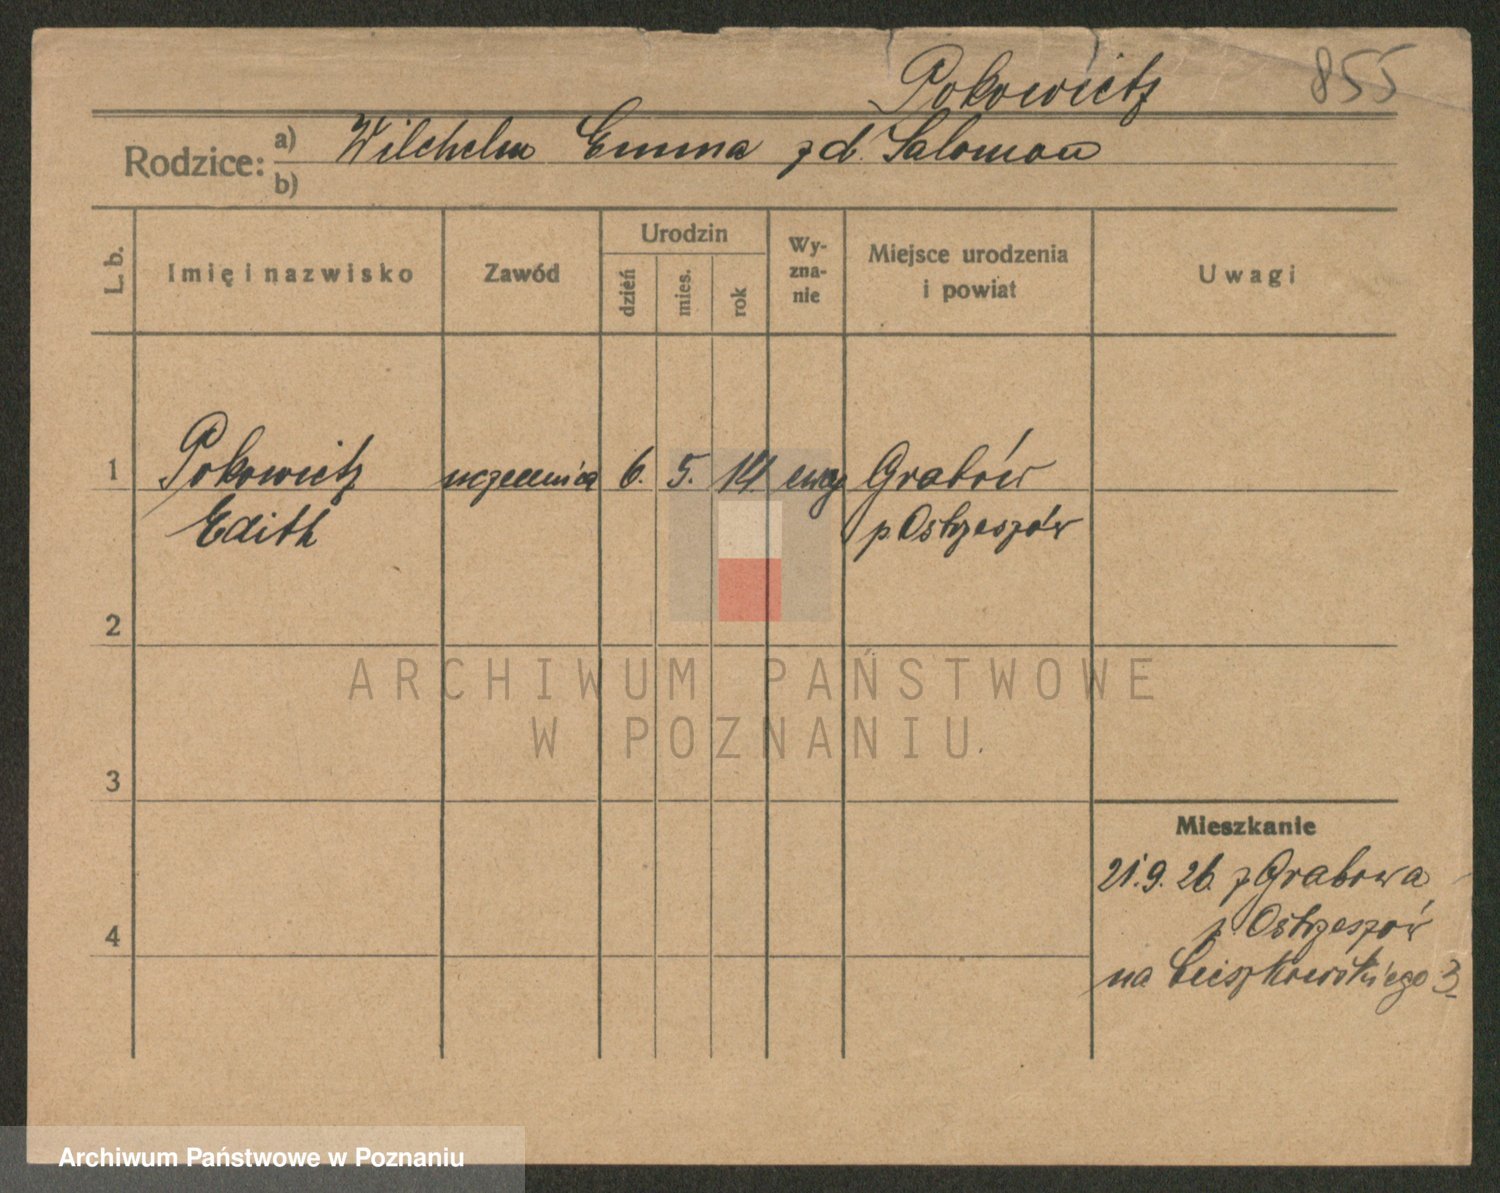 Pokowietz 855
Rodzice: a) Wilchelm Emma z d. Salomon
b)
L. b.
Imię i nazwisko
Zawód
Urodzin
dzień
mies.
rok
Wy-
zna-
nie
Miejsce urodzenia
i powiat
Uwagi
1 Pokowietz uczennica 6. 5. 14. ewg Grabów
Edith p Ostrzeszów
2
ARCHIWUM PAŃSTWOWE
W POZNANIU
3
Mieszkanie
21.9.26. z Grabowa
p. Ostrzeszów
4
na Cieszkowskiego 3
Archiwum Państwowe w Poznaniu